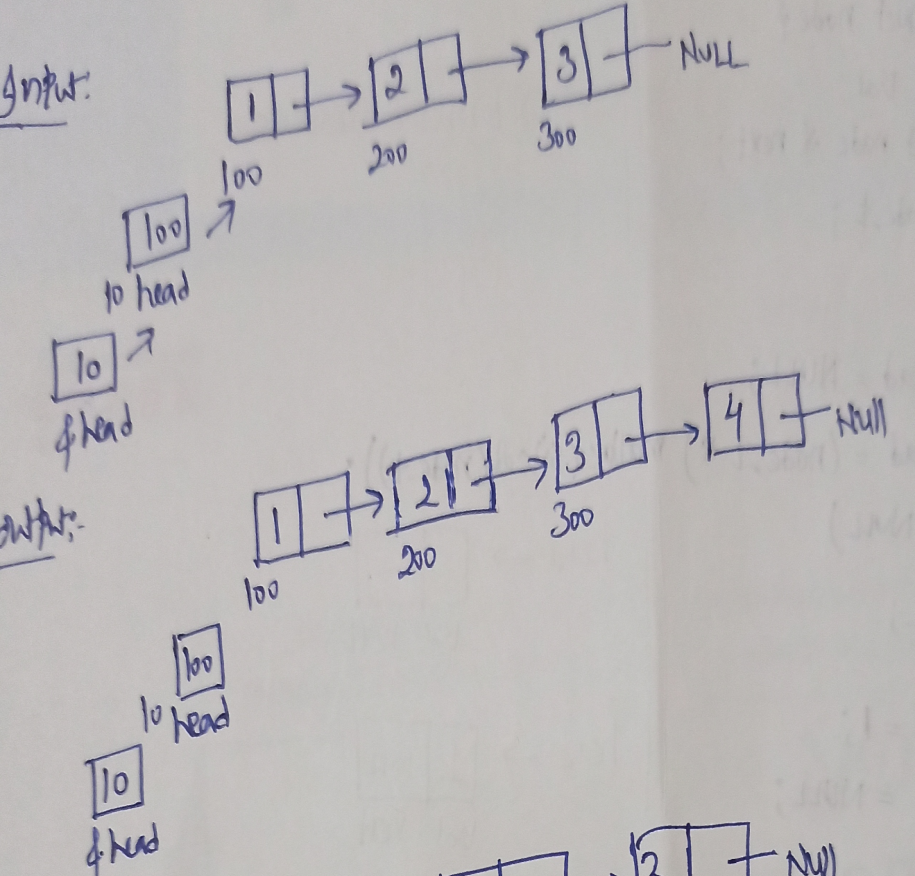 Input:
1 2 3 NULL
100 200 300
100
10 head
10
&head
output:-
1 2 3 4 Null
100 200 300
100
10 head
10
&head
2 Null